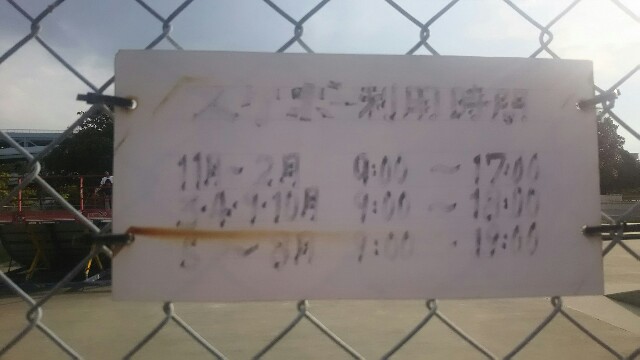 スケボー利用時間
11月～2月 9:00 ～ 17:00
3・4・9・10月 9:00 ～ 18:00
5 ～ 8月 9:00 ～ 19:00